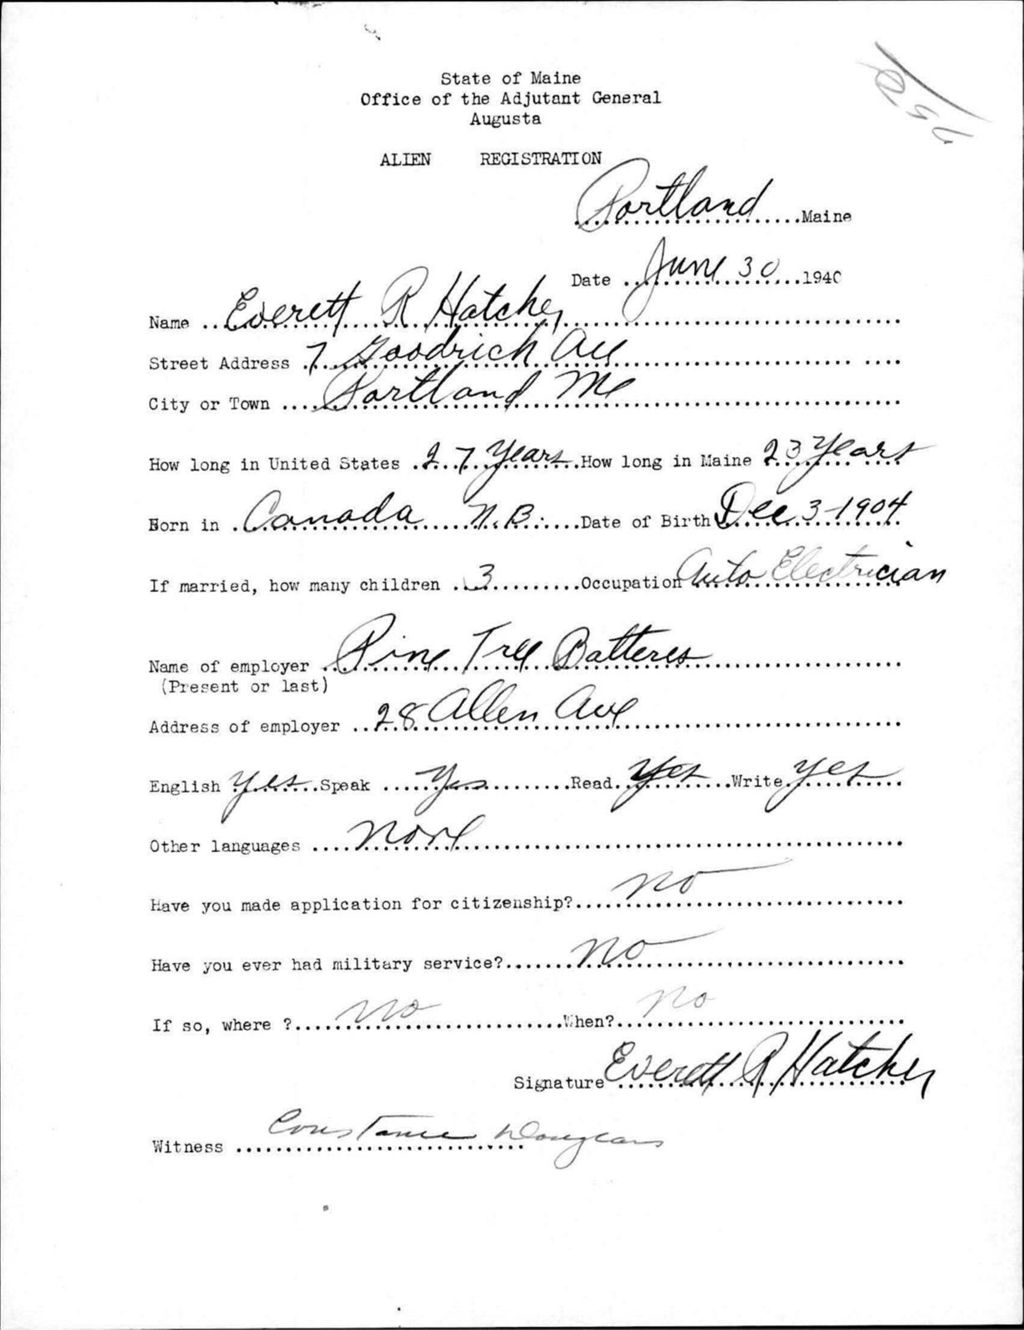 State of Maine
Office of the Adjutant General
Augusta
ALIEN REGISTRATION
Portland Maine
Date June 30 1940
Name Everett R Hatchey
Street Address 7 Goodrich Ave
City or Town Portland Me
How long in United States 27 Years How long in Maine 23 Years
Born in Canada N.B. Date of Birth Dec 3-1904
If married, how many children 3 Occupation Auto Electrician
Name of employer Pine Tree Batteres
(Present or last)
Address of employer 28 Allen Ave
English Yes Speak Yes Read Yes Write Yes
Other languages None
Have you made application for citizenship? No
Have you ever had military service? No
If so, where ? No When? No
Signature Everett R Hatchey
Witness Constance